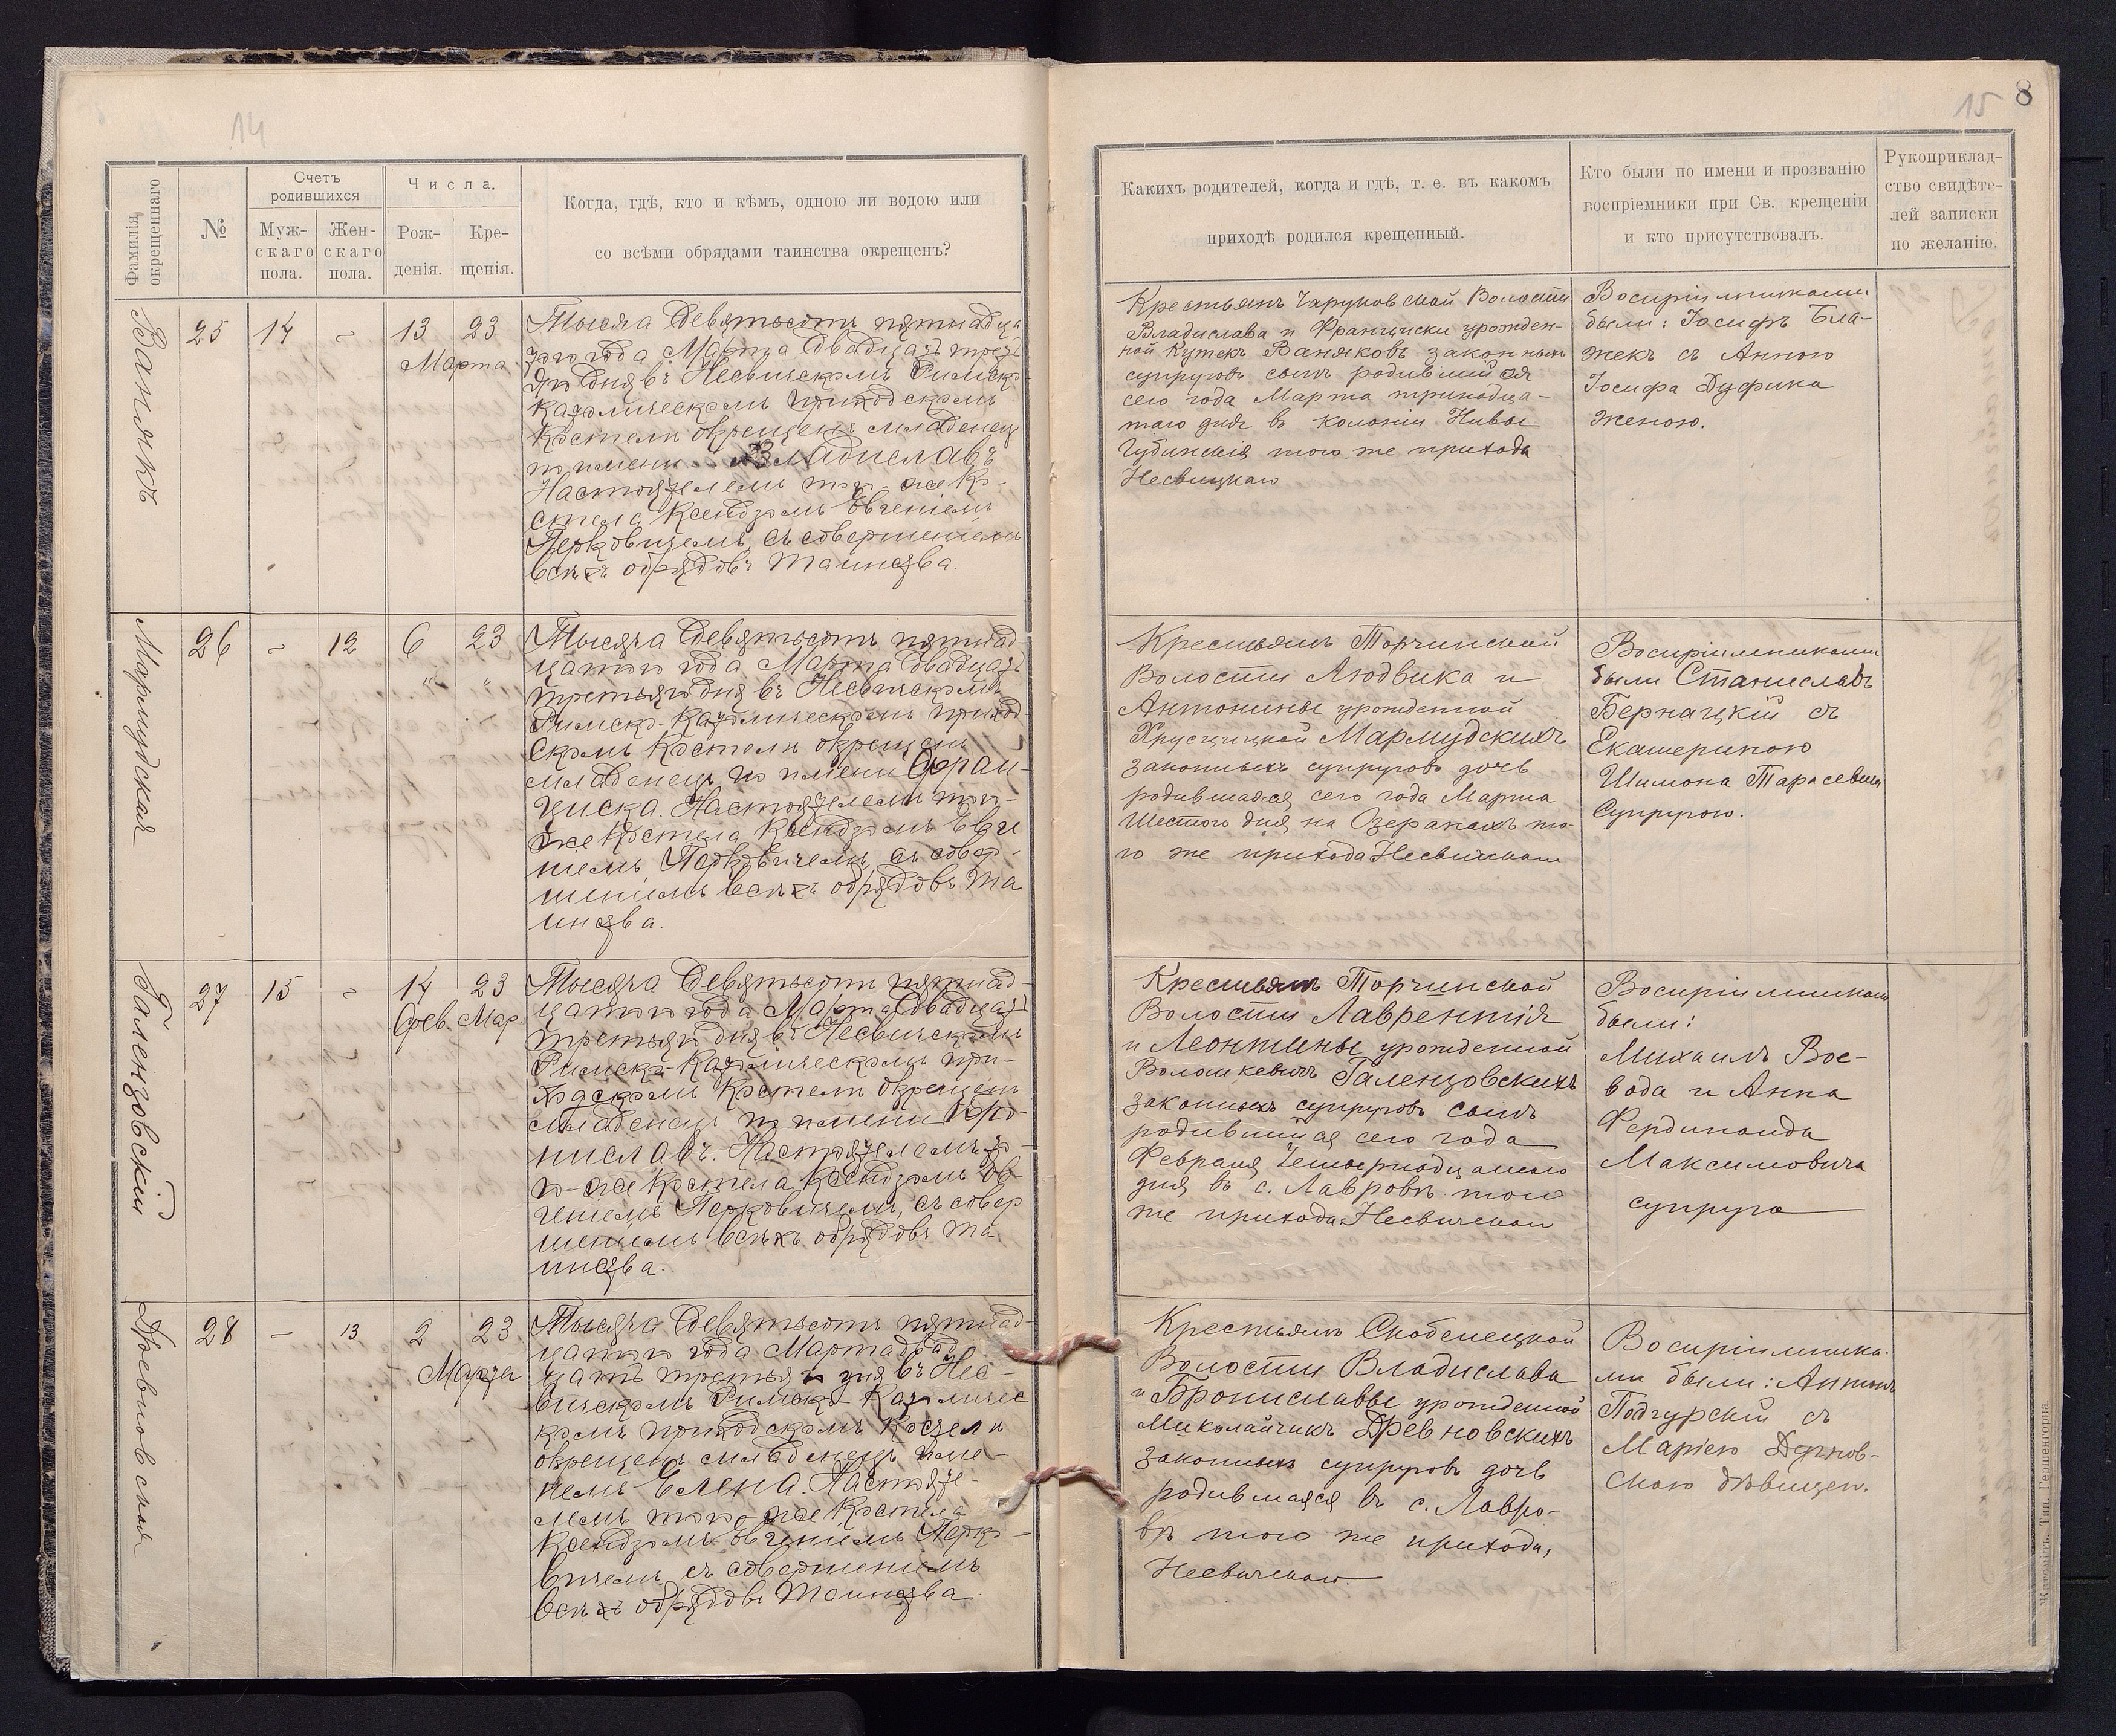 14
15
8
Фамилія
окрещеннаго
№
Счетъ
родившихся
Муж-
скаго
пола.
Жен-
скаго
пола.
Числа.
Рож-
денія.
Кре-
щенія.
Когда, гдѣ, кто и кѣмъ, одною ли водою или
со всѣми обрядами таинства окрещенъ?
Какихъ родителей, когда и гдѣ, т. е. въ какомъ
приходѣ родился крещенный.
Кто были по имени и прозванію
воспріемники при Св. крещеніи
и кто присутствовалъ.
Рукоприклад-
ство свидѣте-
лей записки
по желанію.
Ванякъ
25 14 - 13 23
Марта
Тысяча девятьсотъ пятнадца
таго года Марта двадцать треть
яго дня въ Несвичскомъ Римско
католическомъ приходскомъ
костелѣ окрещенъ младенец
по имени Владиславъ
Настоятелемъ того-же Ко-
стела Ксендзомъ Евгеніемъ
Перковичемъ, съ совершеніемъ
всѣхъ обрядовъ Таинства.
Крестьянъ Чаруковской Волости
Владислава и Франциски урожден-
ной Кутекъ Ваняковъ законныхъ
супруговъ сынъ родившийся
сего года Марта тринадца-
таго дня въ колоніи Нивы
Губинскія того же прихода
Несвицкаго
Воспріимниками
были: Іосифъ Бла-
жекъ съ Анною
Іосифа Дуфика
женою.
Мармудская
26 - 12 6 23
" "
Тысяча девятьсотъ пятнад-
цатого года Марта двадцать
третьяго дня въ Несвичскомъ
Римско-Католическомъ приход-
скомъ костелѣ окрещенъ
младенецъ по имени Фран-
циска. Настоятелемъ того-
же Костела Ксендзомъ Евге
ніемъ Перковичемъ, съ совер-
шеніемъ всѣхъ обрядовъ Та
инства.
Крестьянъ Торчинской
Волости Людвика и
Антонины урожденной
Хрусцицкой Мармудскихъ
законныхъ супруговъ дочь
родившаяся сего года Марта
Шестого дня на Озеранахъ то-
го же прихода Несвичскаго
Воспріимниками
были Станиславъ
Бернацкій съ
Екатериною
Шимона Тарасевича
Супругою.
Галенцовскій
27 15 - 14 23
Фев. Мар
Тысяча девятьсотъ пятнад-
цатого года Марта двадцать
третьяго дня въ Несвичскомъ
Римско-Католическомъ при-
ходскомъ Костелѣ окрещенъ
младенецъ по имени Бро-
ниславъ. Настоятелемъ то-
го-же Костела Ксендзомъ Ев-
геніемъ Перковичемъ, съ совер
шеніемъ всѣхъ обрядовъ Та
инства.
Крестьянъ Торчинской
Волости Лаврентія
и Леонтины урожденной
Волошкевичъ Галенцовскихъ
законныхъ супруговъ сынъ
родившийся сего года
Февраля Четырнадцатого
дня въ с. Лавровѣ того
же прихода Несвичскаго
Воспріимниками
были:
Михаилъ Вое-
вода и Анна
Фердинанда
Максимовича
супруга
Древновская
28 - 13 2 23
Марта
Тысяча девятьсотъ пятнад-
цатого года Марта двад
цать третьяго дня въ Нес-
вичскомъ Римско-Католичес
комъ приходскомъ Костелѣ
окрещенъ младенецъ име-
немъ Елена. Настояте-
лемъ того-же Костела
Ксендзомъ Евгеніемъ Перко-
вичемъ, съ совершеніемъ
всѣхъ обрядовъ Таинства.
Крестьянъ Скобелецкой
Волости Владислава
и Брониславы урожденной
Миколайчикъ Древновскихъ
законныхъ супруговъ дочь
родившаяся въ с. Лавро-
вѣ того же прихода,
Несвичскаго.
Воспріимника-
ми были: Антонъ
Подгурскій съ
Маріею Дернов-
скою дѣвицею.
Житоміръ. Тип. Гершенгорна.